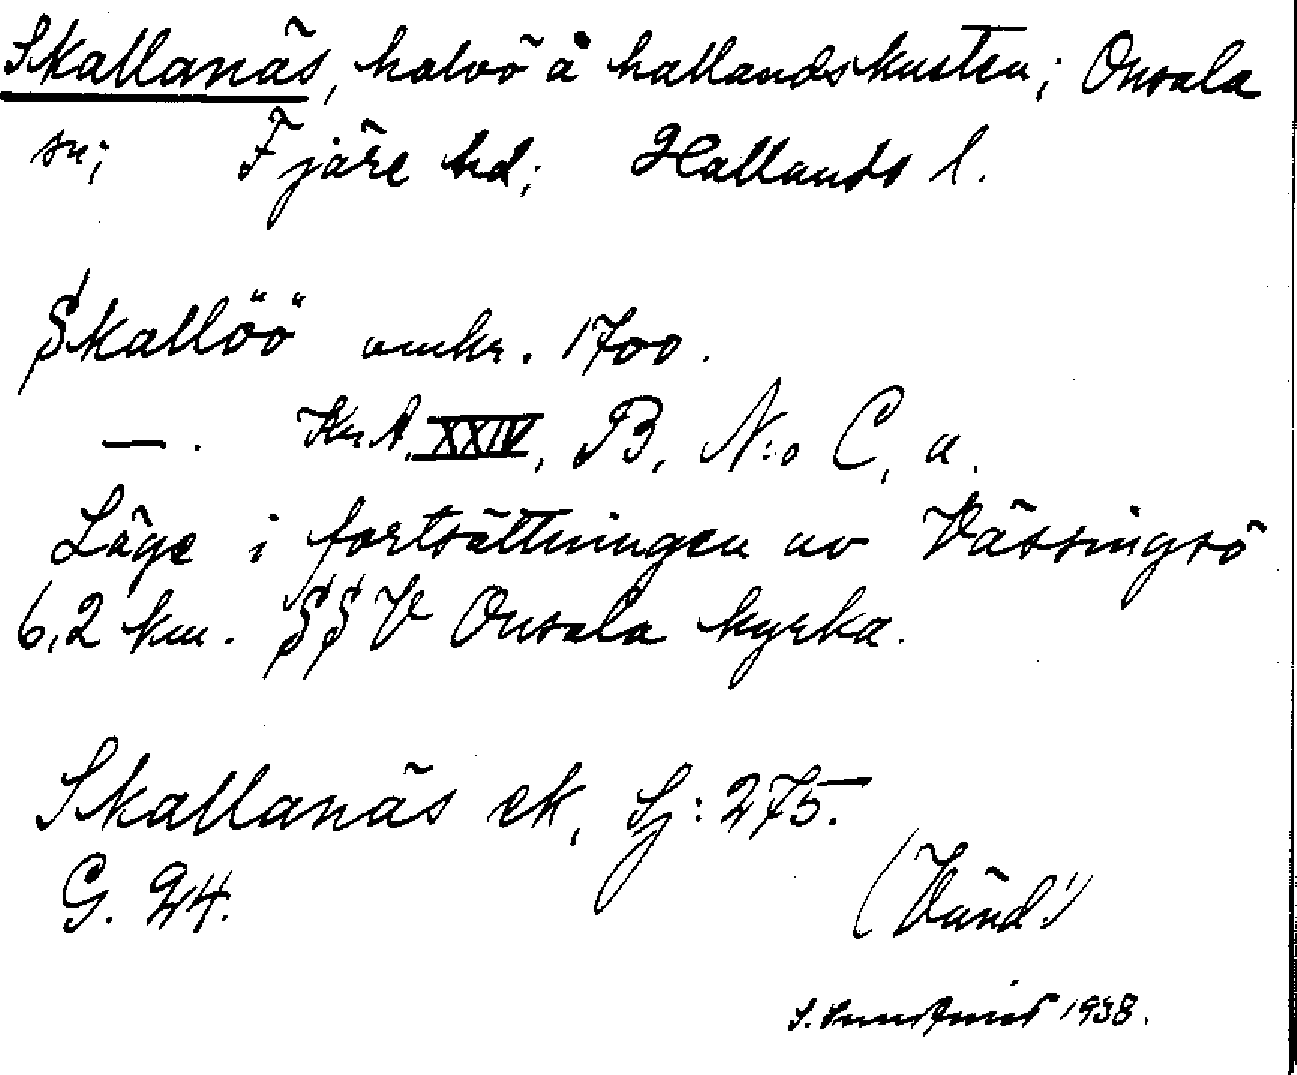 Skallanäs, halvö å hallandskusten; Onsala
sn; Fjäre hd; Hallands l.
Skallöö omkr. 1700.
— . Kr.A. XXIV, B, N:o C, a.
Läge i fortsättningen av Vässingsö
6,2 km. SSV Onsala kyrka.
Skallanäs ek, Sj: 275.
G. 24.
(Vänd!)
S. 1938.